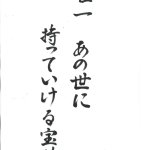 一 あの世に
持っていける宝